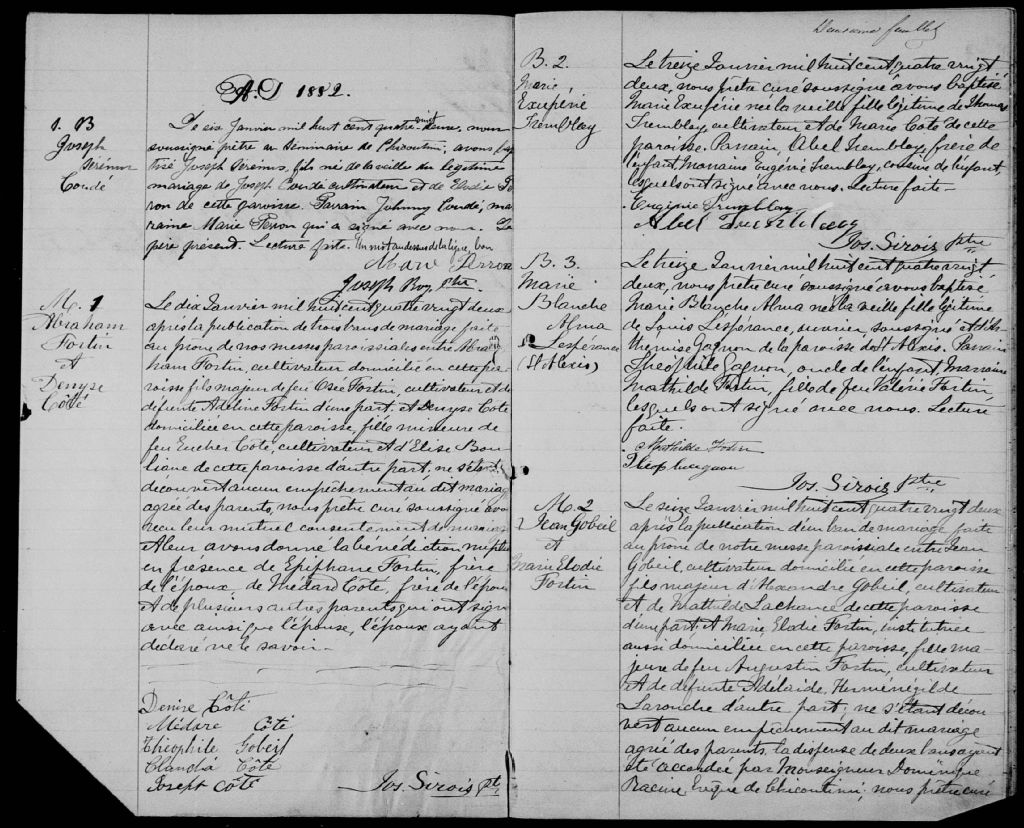 A.D 1882.
1. B
Joseph
Sérénus
Coudé
Le six Janvier mil huit cent quatre vingt deux, nous
soussigné prêtre au Séminaire de Chicoutimi, avons bap
tisé Joseph Sérénus, fils né de la veille du légitime
mariage de Joseph Coudé cultivateur et de Elodie Per
ron de cette paroisse. Parain Johnny Coudé, ma
raine Marie Perron qui a signé avec nous. Le
père présent. Lecture faite. Un mot au dessus de la ligne, bon
Marie Perron
Joseph Roy ptre
M. 1
Abraham
Fortin
et
Denyse
Côté
Le dix Janvier mil huit cent quatre vingt deux
après la publication de trois bans de mariage faite
au prône de nos messes paroissiales entre Abra
ham Fortin, cultivateur domicilié en cette pa
roisse fils majeur de feu Osée Fortin, cultivateur et de
défunte Adeline Fortin d'une part; et Denyse Cote
domiciliée en cette paroisse, fille mineure de
feu Eucher Coté, cultivateur et d'Elise Bou
liane de cette paroisse d'autre part, ne s'étant
découvert aucun empêchement au dit mariage
agréé des parents, nous prêtre curé soussigné avons
reçu leur mutuel consentement de mariage
et leur avons donné la bénédiction nuptiale
en présence de Epiphane Fortin, frère
de l'époux, de Médard Coté, frère de l'épouse
et de plusieurs autres parents qui ont signé
avec ainsi que l'épouse, l'époux ayant
déclaré ne le savoir.
Denise Côté
Médare Côté
Théophile Gobeil
Claudia Côté
Joseph Côté
Jos. Sirois pt
Deuxième feuillet
B. 2.
Marie
Exupérié
Tremblay
Le treize Janvier mil huit cent quatre vingt
deux, nous prêtre curé soussigné avons baptisé
Marie Exupérie née la veille, fille légitime de Thomas
Tremblay, cultivateur et de Marie Coté de cette
paroisse. Parrain, Abel Tremblay, frère de
l'enfant, Marraine Eugénie Tremblay, cousine de l'enfant,
lesquels ont signé avec nous. Lecture faite.
Eugénie Tremblay
Abel Tremblay
Jos. Sirois ptre
B. 3.
Marie
Blanche
Alma
Lespérance
(St Alexis)
Le treize Janvier mil huit cent quatre vingt
deux, nous prêtre curé soussigné avons baptisé
Marie Blanche Alma née la veille fille légitime
de Louis Lespérance, ouvrier, soussigné et d'Ar
themise Gagnon de la paroisse de St Alexis. Parrain
Théophile Gagnon, oncle de l'enfant, Marraine
Mathilde Fortin, fille de feu Valérie Fortin,
lesquels ont signé avec nous. Lecture
faite.
Mathilde Fortin
Jos. Sirois ptre
M. 2
Jean Gobeil
et
Marie Elodie
Fortin
Le seize Janvier mil huit cent quatre vingt deux
après la publication d'un ban de mariage faite
au prône de notre messe paroissiale entre Jean
Gobeil, cultivateur domicilié en cette paroisse
fils majeur d'Alexandre Gobeil, cultivateur
et de Mathilde Lachance de cette paroisse
d'une part, et Marie, Elodie Fortin, institutrice
aussi domiciliée en cette paroisse, fille ma
jeure de feu Augustin Fortin, cultivateur
et de défunte Adélaide, Herménégilde
Larouche d'autre part; ne s'étant décou
vert aucun empêchement au dit mariage
agréé des parents, la dispense de deux bans ayant
été accordée par Monseigneur Dominique
Racine Evêque de Chicoutimi; nous prêtre curé